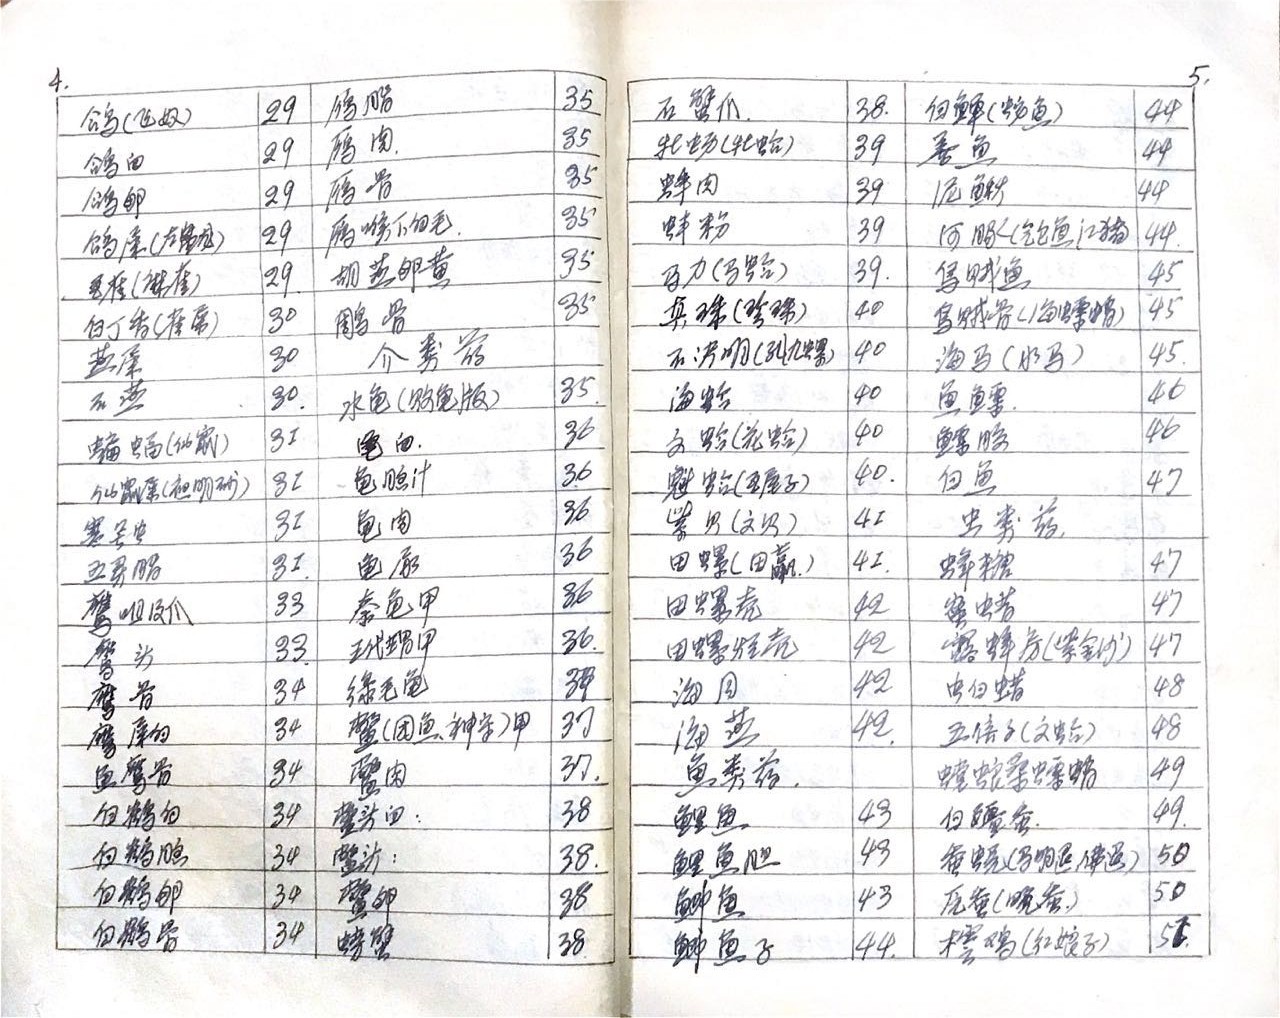 4.
鸽(飞奴) 29 鴈脂 35
鸽白 29 鴈肉. 35
鸽卵 29 鴈骨 35
鸽屎(左蟠龙) 29 鴈喉下白毛. 35
麻雀(雀) 29. 胡燕卵黄 35
白丁香(雀屎) 30 鹛骨 35
燕屎 30 介类药
石燕 30. 水龟(败龟版) 35.
蝙蝠(仙鼠) 31 龟血. 36
仙鼠屎(夜明砂) 31 龟胆汁 36.
寒号虫 31 龟肉 36
五灵脂 31. 龟尿 36
鹰咀及爪 33 秦龟甲 36
鹰头 33. 玳瑁甲 36.
鹰骨 34 绿毛龟
鹰屎白 34 鳖(团鱼、神守)甲 37
鱼鹰骨 34 鳖肉 37.
白鹤白 34 鳖头血: 38
白鹤脑 34 鳖头: 38.
白鹤卵 34 鳖卵 38
白鹤骨 34 螃蟹 38.
5.
石蟹爪. 38. 白鲜( 鱼) 44
牡蛎(牡蛤) 39 章鱼 44
蚌肉 39 泥鳅 44
蚌粉 39 河豚(鱼江猪 44.
马刀(马蛤) 39. 乌贼鱼 45
真珠(珍珠) 40 乌贼骨(海螵蛸) 45
石决明(九孔螺) 40 海马(水马) 45.
海蛤 40 鱼鳔. 46
文蛤(花蛤) 40 鳔胶 46
魁蛤(瓦屋子) 40. 白鱼 47
紫贝(文贝) 41 虫类药.
田螺(田蠃.) 41. 蜂糖 47
田螺壳 42 蜜蜡 47
田螺烂壳 42 露蜂房(紫金沙) 47
海月 42 虫白蜡 48
海燕 42. 五倍子(文蛤) 48
鱼类药. 螳螂桑螵蛸 49
鲤鱼 43 白殭蚕. 49.
鲤鱼胆 43 蚕蜕(马明退佛退) 50
鲫鱼 43 原蚕(晚蚕.) 50
鲫鱼子 44. 樗鸡(红娘子) 51.